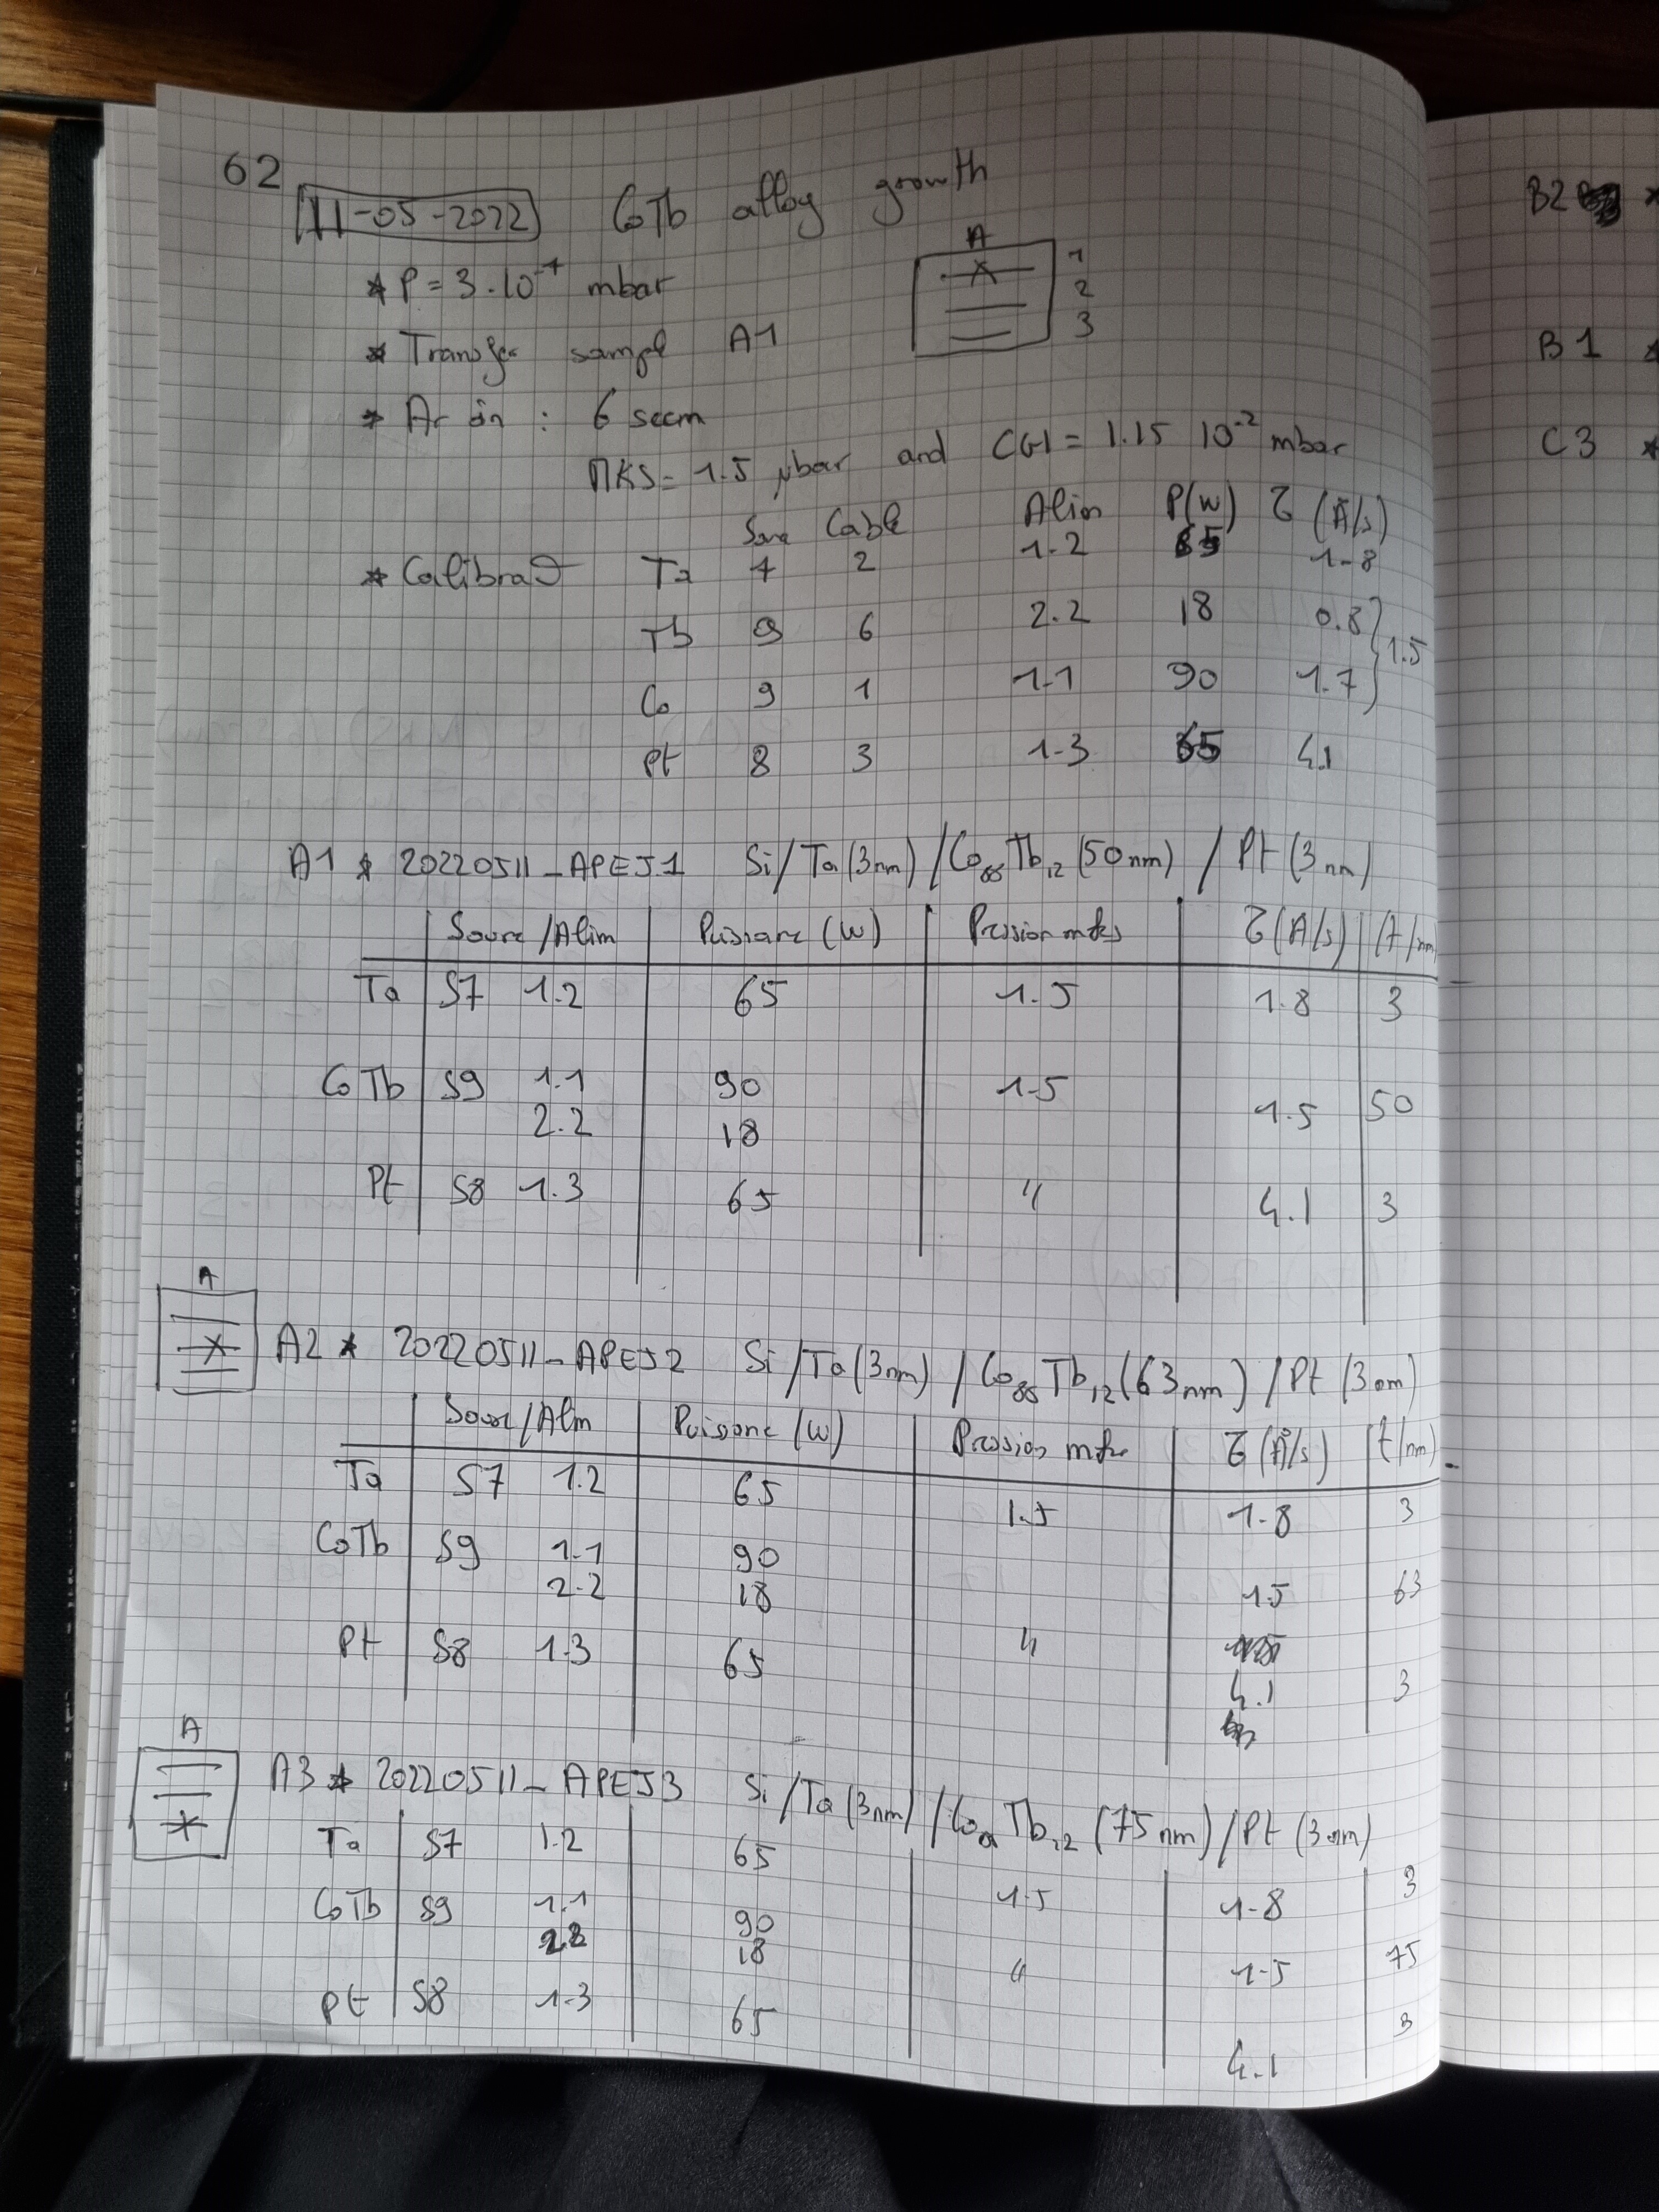 62
11-05-2022 CoTb alloy growth
A
* P = 3.10⁻⁷ mbar
1
2
3
* Transfer sampl A1
* Ar in : 6 sccm
MKS = 1.5 µbar and CG1 = 1.15 10⁻² mbar
Cable Alim P(W) τ (Å/s)
* Calibrat Ta 7 2 1.2 65 1.8
Tb 9 6 2.2 18 0.8
1.5
Co 9 1 1.1 90 1.7
Pt 8 3 1.3 65 4.1
A1 * 20220511_APEJ1 Si/Ta(3nm)/Co₈₈Tb₁₂(50nm) / Pt(3nm)
Source/Alim Puissance (W) Pression mks τ(Å/s) t/nm
Ta S7 1.2 65 1.5 1.8 3
CoTb S9 1.1 90 1.5 1.5 50
2.2 18
Pt S8 1.3 65 " 4.1 3
A
A2 * 20220511_APEJ2 Si/Ta(3nm) / Co₈₈Tb₁₂(63nm) / Pt(3nm)
Source/Alim Puissance (W) Pression mks τ(Å/s) t/nm
Ta S7 1.2 65 1.5 1.8 3
CoTb S9 1.1 90 1.5 63
2.2 18
Pt S8 1.3 65 " 4.1 3
A
A3 * 20220511_APEJ3 Si/Ta(3nm) / Co Tb₁₂ (75nm)/Pt (3nm)
Ta S7 1.2 65 1.5 1.8 3
CoTb S9 1.1 90 " 1.5 75
2.2 18
Pt S8 1.3 65 4.1 3
B2
B1 *
C3 *